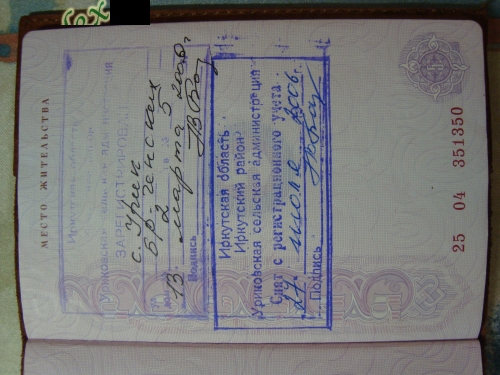 МЕСТО ЖИТЕЛЬСТВА
Иркутская область
Уриковская сельская администрация
ЗАРЕГИСТРИРОВАН
с. Урик
бр-Ченских
2 5
13 марта 2000г
Подпись
Иркутская область
Иркутский район
Уриковская сельская администрация
Снят с регистрационного учета
"27" июля 2006г.
Подпись
25 04 351350